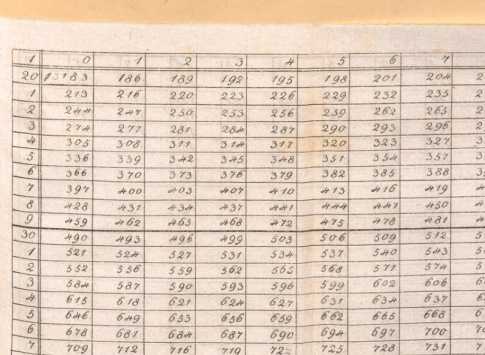 1 0 1 2 3 4 5 6 7
20 13183 186 189 192 195 198 201 204
1 213 216 220 223 226 229 232 235
2 244 247 250 253 256 259 262 265
3 274 277 281 284 287 290 293 296
4 305 308 311 314 317 320 323 327
5 336 339 342 345 348 351 354 357
6 366 370 373 376 379 382 385 388
7 397 400 403 407 410 413 416 419
8 428 431 434 437 441 444 447 450
9 459 462 465 468 472 475 478 481
30 490 493 496 499 503 506 509 512
1 521 524 527 531 534 537 540 543
2 552 556 559 562 565 568 571 574
3 584 587 590 593 596 599 602 606
4 615 618 621 624 627 631 634 637
5 646 649 653 656 659 662 665 668
6 678 681 684 687 690 694 697 700
7 709 712 716 719 725 728 731